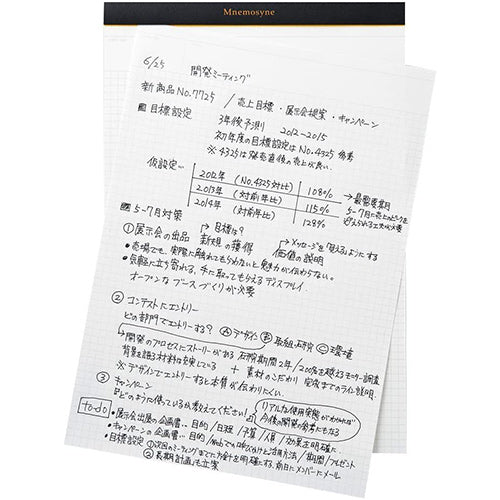 Mnemosyne
6/25
開発ミーティング
新商品No.7725 / 売上目標・展示会提案・キャンペーン
目標設定 3年後予測 2012-2015
初年度の目標設定はNo.4325参考
※4325は発売直後の売上が良い
仮設定
2012年 (No.4325対比) 108%
2013年 (対前年比) 115%
2014年 (対前年比) 128%
→最需要期
5~7月に売上のピークを
迎えられる工夫が必要
5~7月対策
①展示会の出品 目標は? 新規の獲得
メッセージを「伝える」ようにする 価値の説明
・売場でも、実際に触れてもらわないと魅力が伝わらない。
・気軽に立ち寄れる、手に取ってもらえるディスプレイ
オープンなブースづくりが必要
②コンテストにエントリー
どの部門でエントリーする? Ⓐデザイン Ⓑ取組み・研究 Ⓒ環境
開発のプロセスにストーリーがある 研究期間2年/200%を越えるモニター調査
背景を語る材料は充実している + 素材のこだわり 完成までのライン説明
※デザインでエントリーすると本質が伝わりにくい。
③キャンペーン
"どのように使っているか教えてください!"
リアルな使用実態がわかれば
今後の開発の参考にもなる
to-do
・展示会出展の企画書・・目的/日程/予算/人員/効果を明確に
・キャンペーンの企画書・・目的/Webでの活用方法/期間/プレゼント
・目標設定 ①次回のミーティングまでに方針を明確にする。前日にメンバーにメール
②長期計画も立案